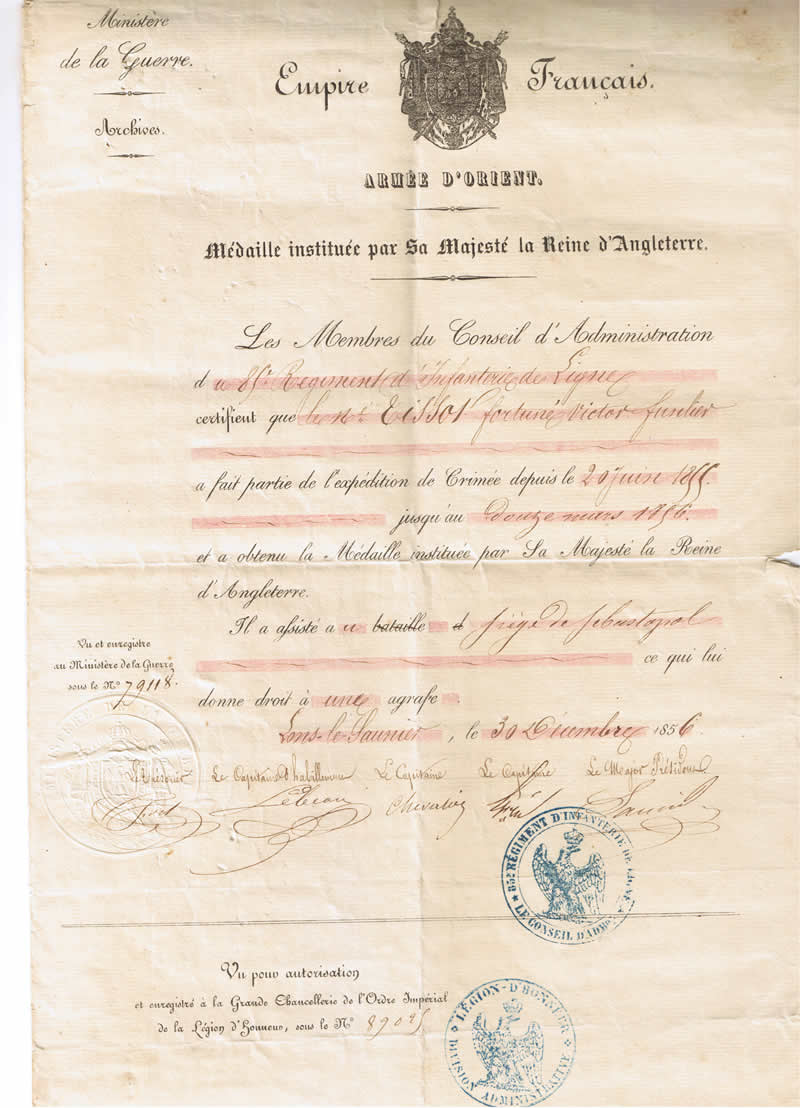 Ministère
de la Guerre.
Archives.
Empire Français.
ARMÉE D'ORIENT.
Médaille instituée par Sa Majesté la Reine d'Angleterre.
Les Membres du Conseil d'Administration
du 85e Regiment d'Infanterie de Ligne
certifient que le Né Tissot fortuné Victor fusilier
a fait partie de l'expédition de Crimée depuis le 20 Juin 1855.
jusqu'au douze mars 1856.
et a obtenu la Médaille instituée par Sa Majesté la Reine
d'Angleterre.
Il a assisté a u bataille d siège de Sebastopol
ce qui lui
donne droit à une agrafe
Lons-le-Saunier, le 30 Décembre 1856.
Vu et enregistré
au Ministère de la Guerre
sous le N° 79118.
Le Capitaine d'habillement Le Capitaine Le Capitaine Le Major Président
Lebeau
85E RÉGIMENT D'INFANTERIE DE LIGNE
LE CONSEIL D'ADM
Vu pour autorisation
et enregistré à la Grande Chancellerie de l'Ordre Impérial
de la Légion d'Honneur, sous le N°
LÉGION-D'HONNEUR
DIVISION ADMINISTRATIVE